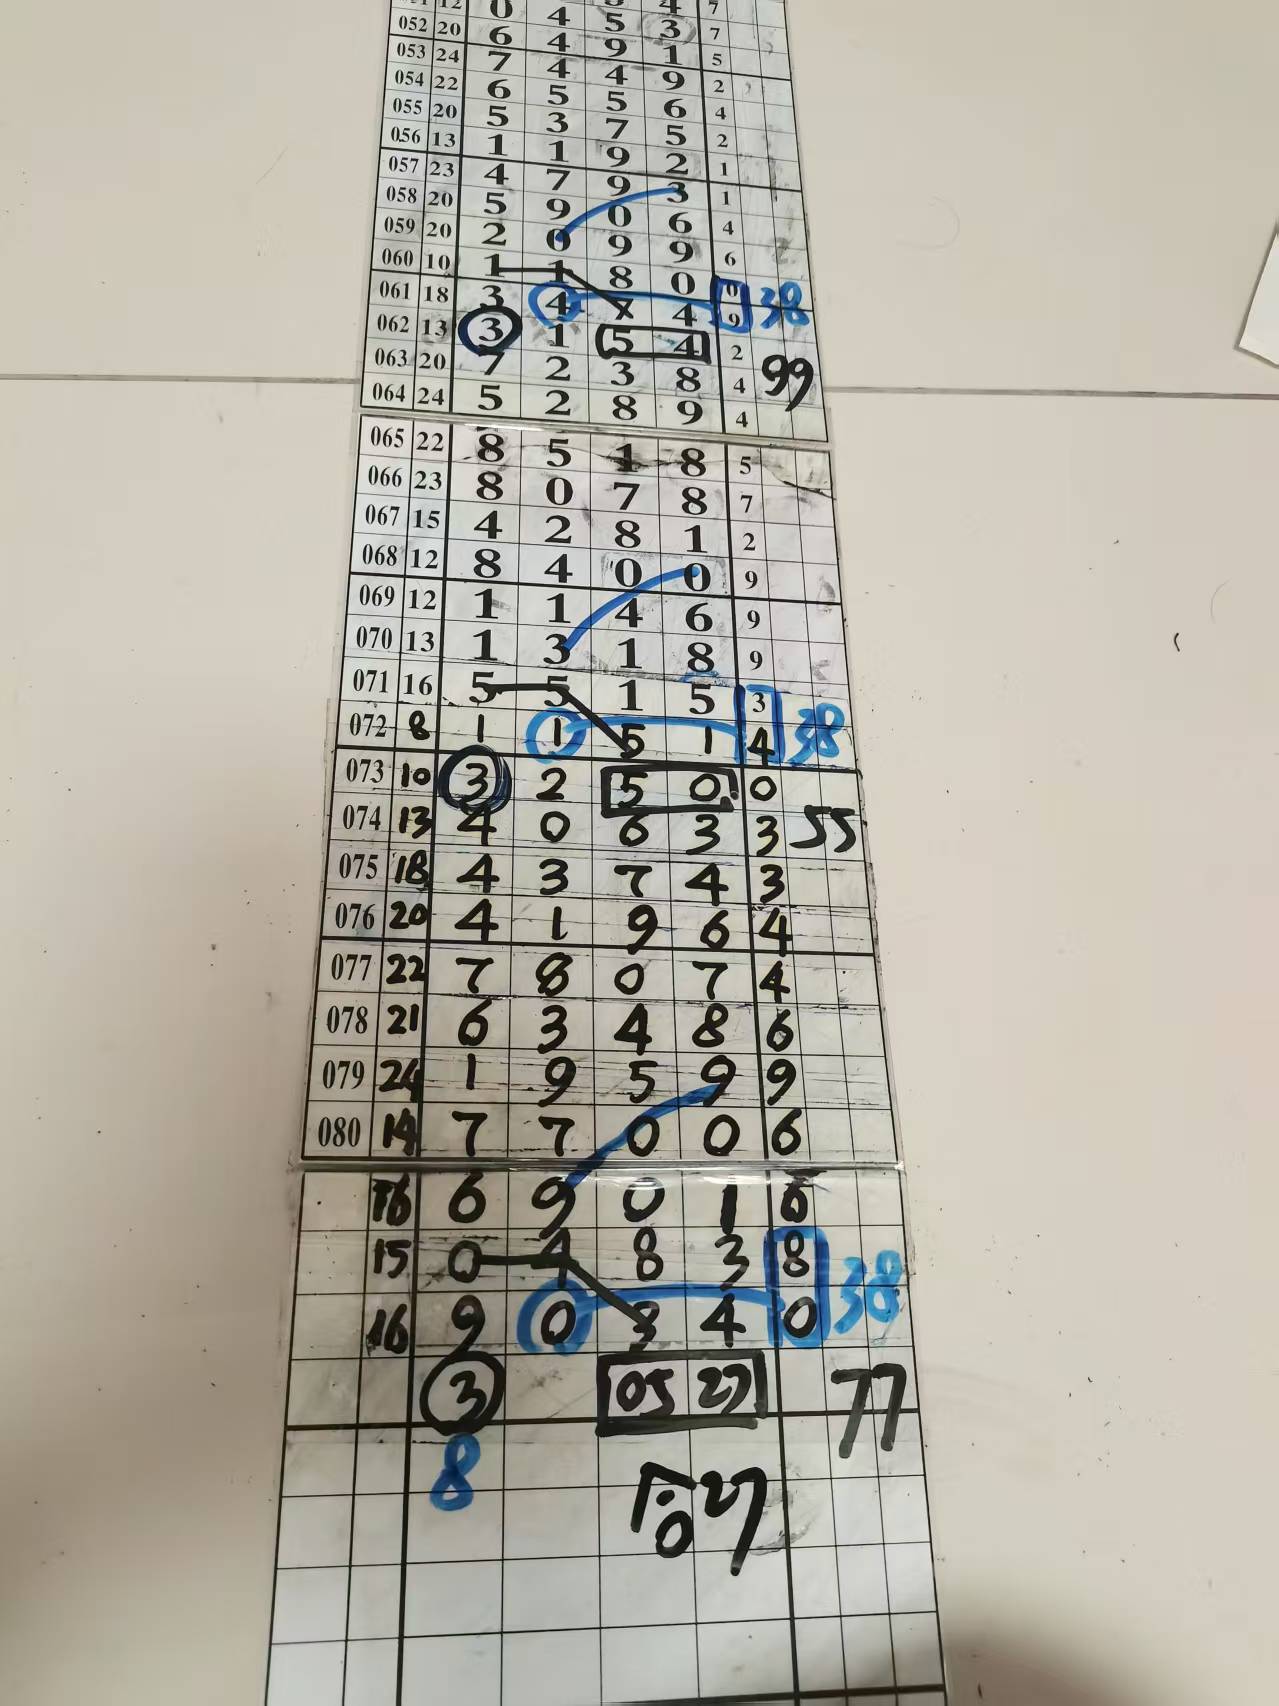 12 0 4 5 4 7
052 20 6 4 5 3 7
053 24 7 4 9 1 5
054 22 6 5 4 9 2
055 20 5 3 5 6 4
056 13 1 1 7 5 2
057 23 4 7 9 2 1
058 20 5 9 9 3 1
059 20 2 0 0 6 4
060 10 1 1 9 9 6
061 18 3 4 8 0 0 38
062 13 3 1 7 4 9
063 20 7 2 5 4 2 99
064 24 5 2 3 8 4
8 9 4
065 22 8 5 1 8 5
066 23 8 0 7 8 7
067 15 4 2 8 1 2
068 12 8 4 0 0 9
069 12 1 1 4 6 9
070 13 1 3 1 8 9
071 16 5 5 1 5 3
072 8 1 1 5 1 4 38
073 10 3 2 5 0 0
074 13 4 0 6 3 3 55
075 18 4 3 7 4 3
076 20 4 1 9 6 4
077 22 7 8 0 7 4
078 21 6 3 4 8 6
079 24 1 9 5 9 9
080 14 7 7 0 0 6
16 6 9 0 1 6
15 0 4 8 3 8
16 9 0 3 4 0 38
3 05 27 77
8
027